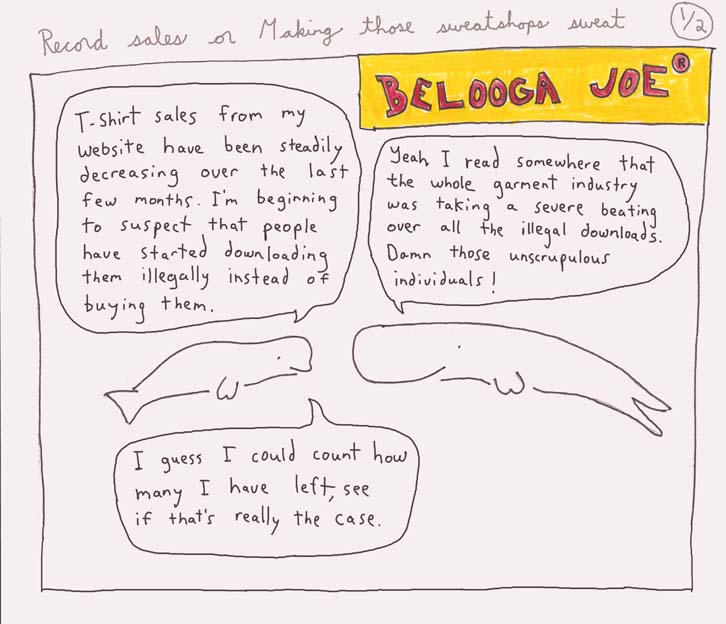 Record sales or Making those sweatshops sweat
1/2
BELOOGA JOE ®
T-Shirt sales from my
website have been steadily
decreasing over the last
few months. I'm beginning
to suspect that people
have started downloading
them illegally instead of
buying them.
Yeah, I read somewhere that
the whole garment industry
was taking a severe beating
over all the illegal downloads.
Damn those unscrupulous
individuals!
I guess I could count how
many I have left, see
if that's really the case.